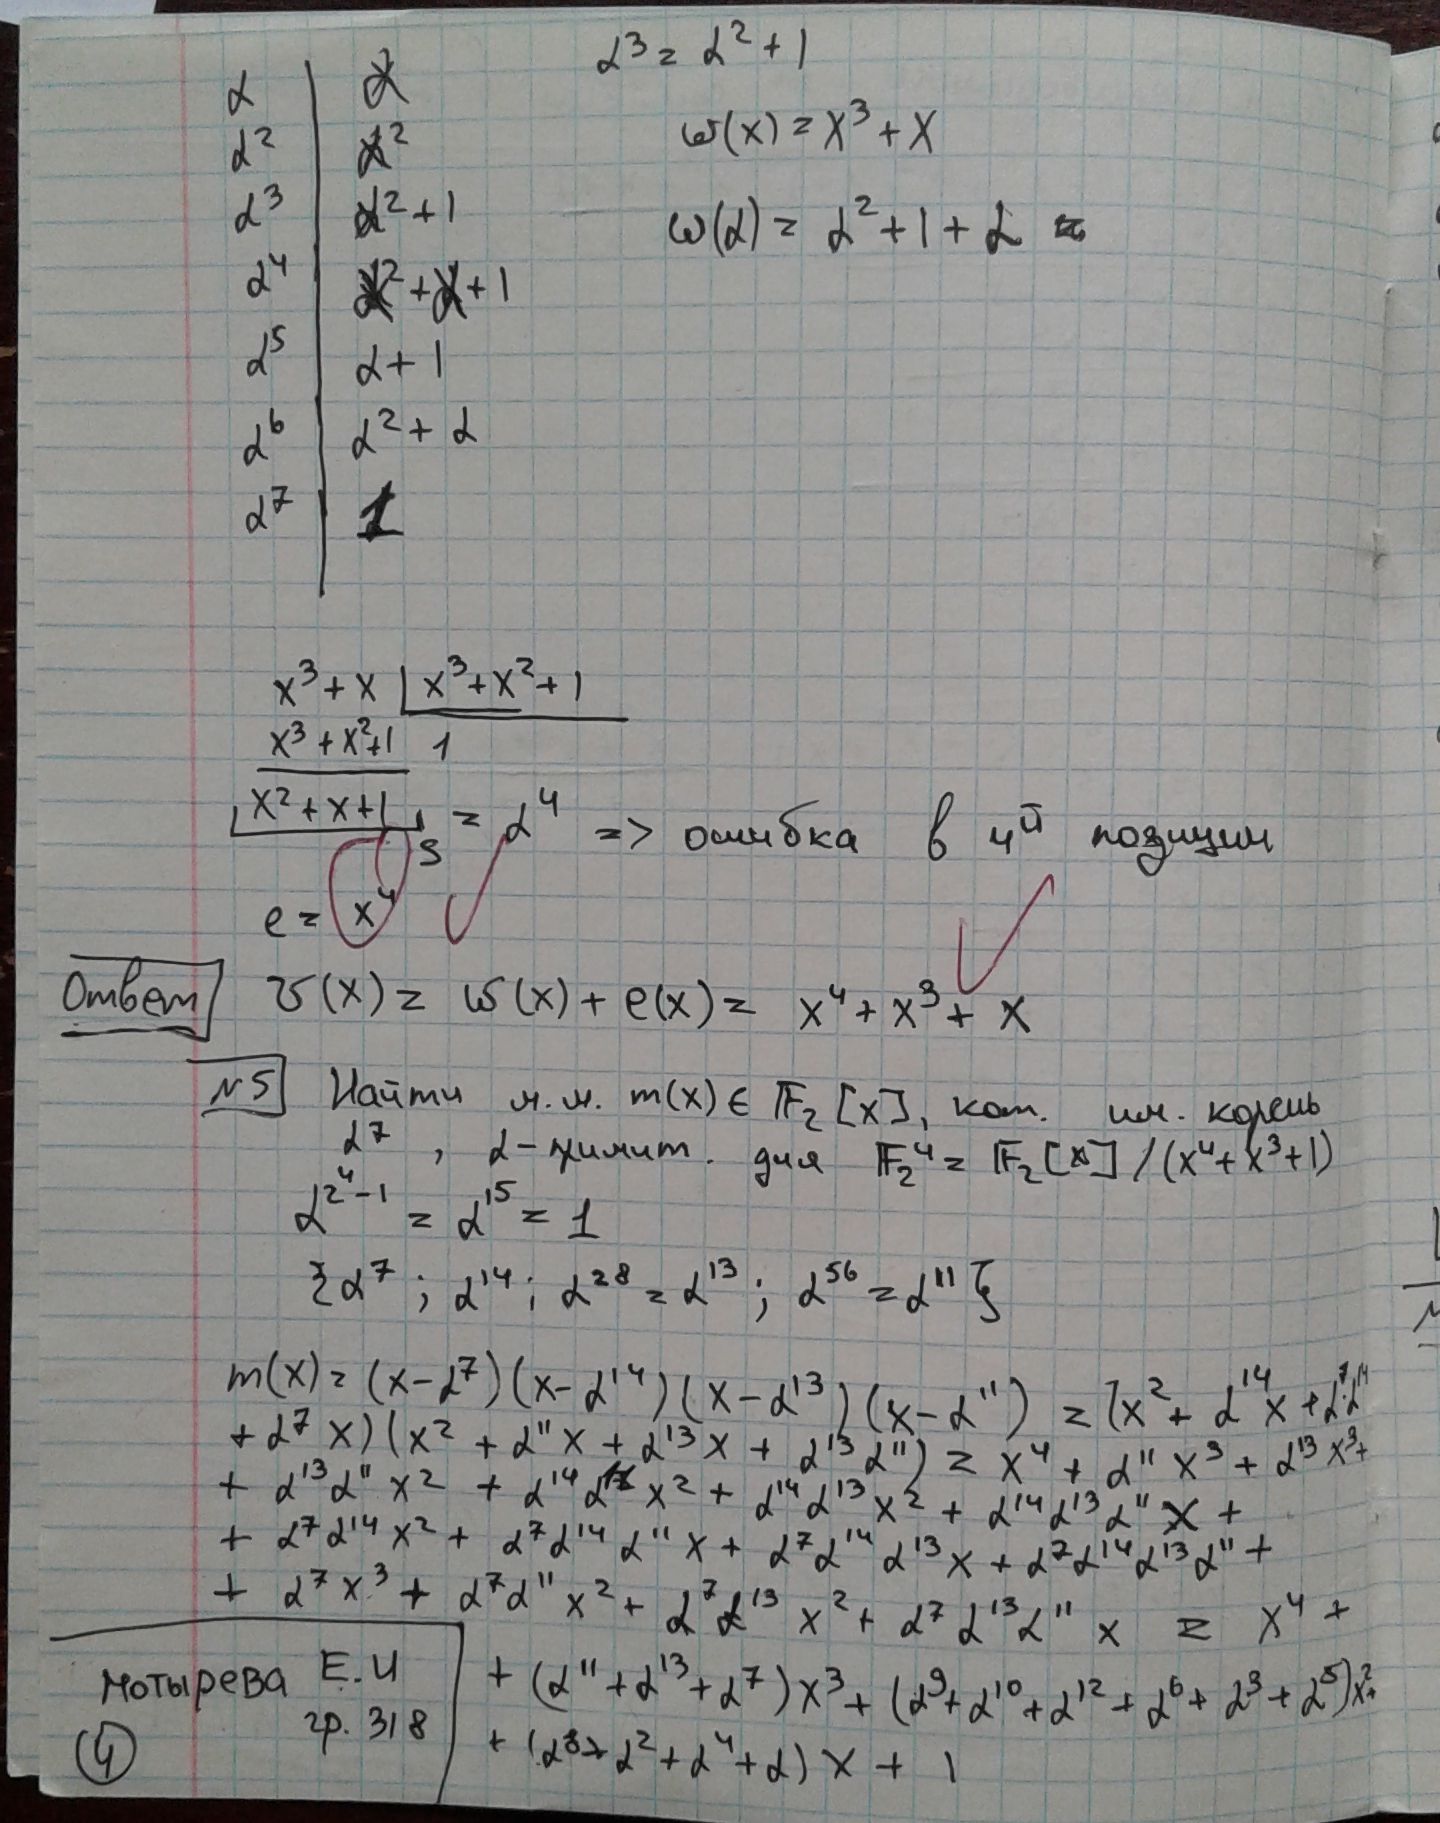 α | α
α² | α²
α³ | α²+1
α⁴ | α²+α+1
α⁵ | α+1
α⁶ | α²+α
α⁷ | 1
α³ = α²+1
ω(x) = x³+x
ω(α) = α²+1+α =
x³+x | x³+x²+1
x³+x²+1 1
x²+x+1 s = α⁴ => ошибка в 4й позиции
e = x⁴
Ответ v(x) = ω(x)+e(x) = x⁴+x³+x
№5 Найти м.м. m(x) ∈ F₂[x], кот. им. корень
α⁷, α-примит. для F₂⁴ = F₂[x]/(x⁴+x³+1)
α²⁴⁻¹ = α¹⁵ = 1
{α⁷; α¹⁴; α²⁸ = α¹³; α⁵⁶ = α¹¹}
m(x) = (x-α⁷)(x-α¹⁴)(x-α¹³)(x-α¹¹) = (x²+α¹⁴x+α⁷α¹⁴
+α⁷x)(x²+α¹¹x+α¹³x+α¹³α¹¹) = x⁴+α¹¹x³+α¹³x³+
+α¹³α¹¹x²+α¹⁴α¹¹x²+α¹⁴α¹³x²+α¹⁴α¹³α¹¹x+
+α⁷α¹⁴x²+α⁷α¹⁴α¹¹x+α⁷α¹⁴α¹³x+α⁷α¹⁴α¹³α¹¹+
+α⁷x³+α⁷α¹¹x²+α⁷α¹³x²+α⁷α¹³α¹¹x = x⁴+
+(α¹¹+α¹³+α⁷)x³+(α⁹+α¹⁰+α¹²+α⁶+α³+α⁵)x²+
+(α⁸+α²+α⁴+α)x+1
Мотырева Е.И
гр. 318
4